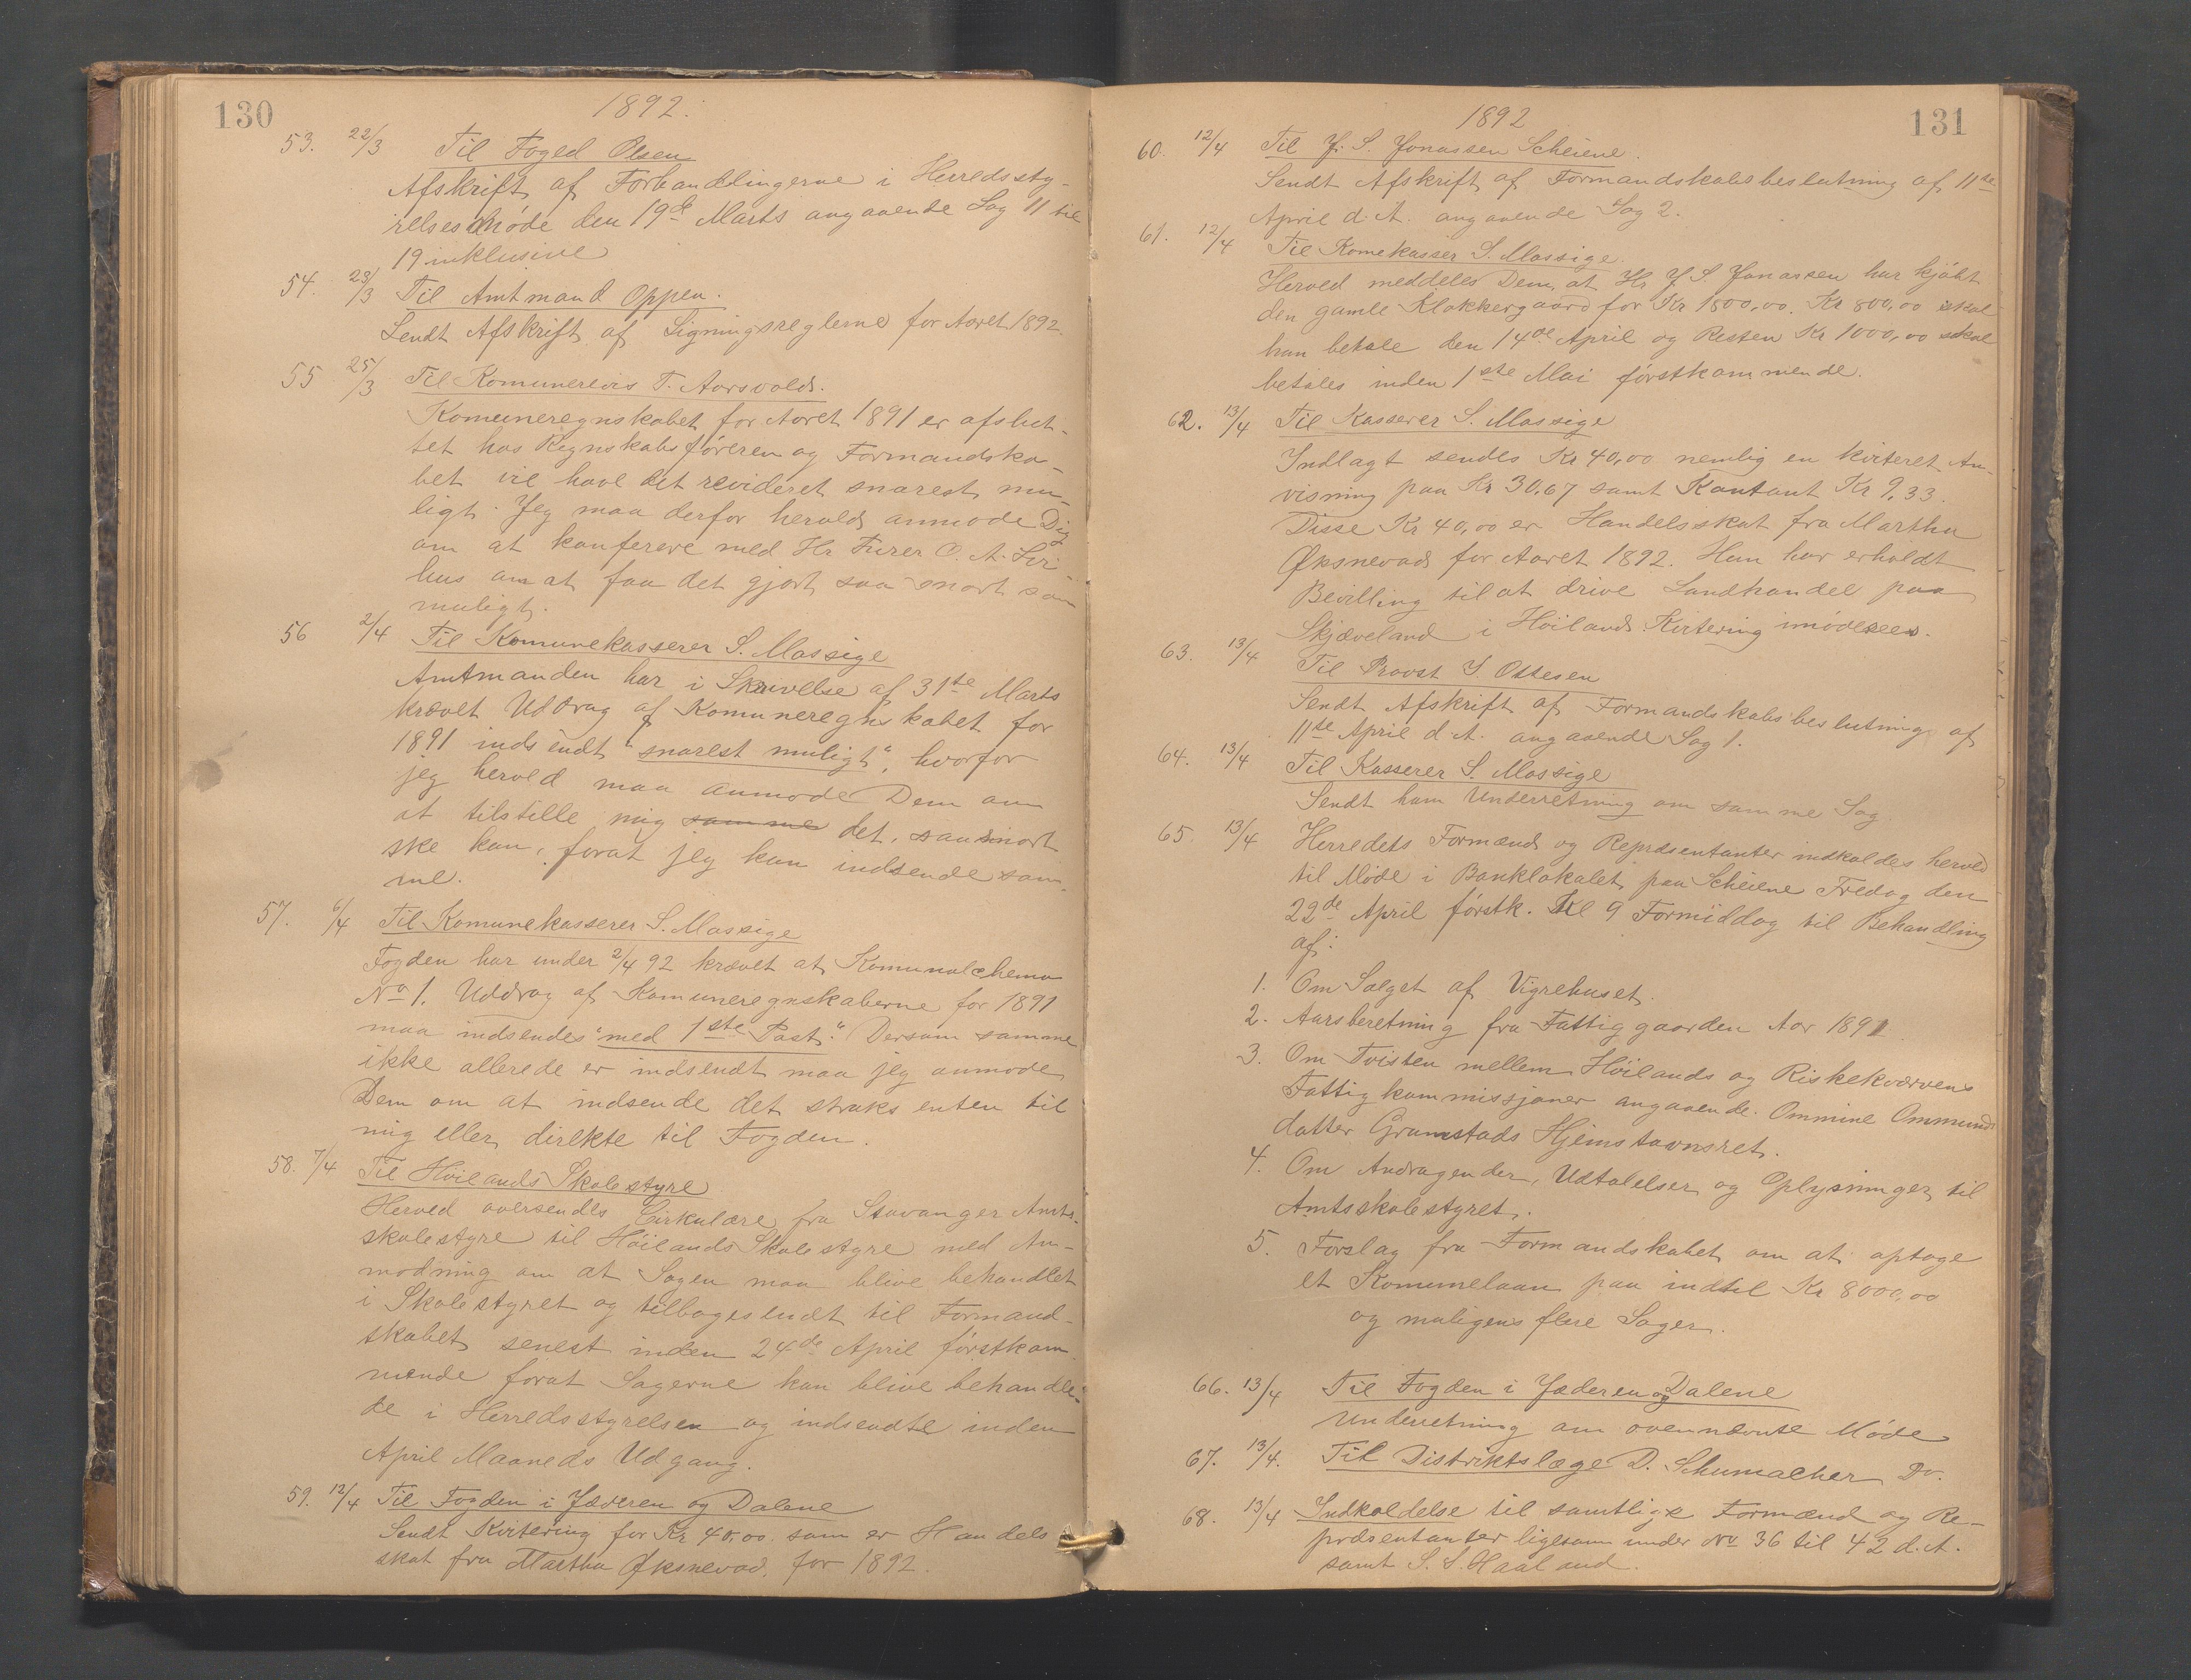 130
1892.
53. 22/3 Til Foged Olsen
Afskrift af Forhandlingerne i Herredssty-
relsesmøde den 19de Marts angaaende Sag 11 til
19 inklusive
54. 23/3 Til Amtmand Oppen.
Sendt Afskrift af Ligningsreglerne for Aaret 1892.
55 25/3 Til Komunerevis T. Aarsvold.
Komuneregnskabet for Aaret 1891 er afslut-
tet hos Regnskabsføreren og Formandska-
bet vil have det revideret snarest mu-
ligt. Jeg maa derfor herved anmode Dig
om at konferere med Hr Furer O. A. Sir-
hus om at faa det gjort saa snart som
muligt.
56 2/4 Til Komunekasserer S. Massige
Amtmanden har i Skrivelse af 31te Marts
krævet Uddrag af Komuneregnskabet for
1891 indsendt "snarest muligt", hvorfor
jeg herved maa anmode Dem om
at tilstille mig samme det, saa snart
ske kan, forat jeg kan indsende sam-
me.
57. 6/4 Til Komunekasserer S. Massige
Fogden har under 2/4 92 krævet at Komunalschema
No 1. Uddrag af Komuneregnskaberne for 1891
maa indsendes "med 1ste Post." Dersom samme
ikke allerede er indsendt maa jeg anmode
Dem om at indsende det straks enten til
mig eller direkte til Fogden.
58. 7/4 Til Høilands Skolestyre
Herved oversendes Cirkulære fra Stavanger Amts-
skolestyre til Høilands Skolestyre med An-
modning om at Sagen maa blive behandlet
i Skolestyret og tilbagesendt til Formand-
skabet senest inden 24de April førstkom-
mende forat Sagerne kan blive behandle-
de i Herredsstyrelsen og indsendte inden
April Maaneds Udgang.
59. 12/4 Til Fogden i Jæderen og Dalene
Sendt Kvitering for Kr 40,00 som er Handels
skat fra Martha Øksnevad for 1892.
131
1892
60. 12/4 Til J. S. Jonassen Scheiene.
Sendt Afskrift af Formandskabsbeslutning af 11te
April d. A. angaaende Sag 2.
61. 12/4 Til Komekasser S. Massige.
Herved meddeles Dem, at Hr J S. Jonassen har kjøbt
den gamle Klokkergaard for Kr 1800,00. Kr 800,00 skal
han betale den 14de April og Resten Kr 1000,00 skal
betales inden 1ste Mai førstkommende.
62. 13/4 Til Kasserer S. Massige
Indlagt sendes Kr 40,00 nemlig en kviteret An-
visning paa Kr 30,67 samt Kontant Kr 9,33.
Disse Kr 40,00 er Handelsskat fra Martha
Øksnevad for Aaret 1892. Hun har erholdt
Bevilling til at drive Landhandel paa
Skjæveland i Høiland. Kvitering imødesees.
63. 13/4 Til Provst J. Ottesen
Sendt Afskrift af Formandskabsbeslutning af
11te April d. A. angaaende Sag 1.
64. 13/4 Til Kasserer S. Massige
Sendt ham Underretning om samme Sag.
65. 13/4 Herredets Formænd og Repræsentanter indkaldes herved
til Møde i Banklokalet paa Scheiene Fredag den
22de April førstk. Kl 9 Formiddag til Behandling
af:
1. Om Salget af Vigrehuset.
2. Aarsberetning fra Fattiggaarden Aar 1891
3. Om Tvisten mellem Høilands og Riskekværvens
Fattigkommissjoner angaaende Ommine Ommunds
datter Gramstads Hjemstavnsret.
4. Om Andragender, Udtalelser og Oplysninger til
Amtsskolestyret.
5. Forslag fra Formandskabet om at optage
et Komunelaan paa indtil Kr 8000,00
og muligens flere Sager.
66. 13/4 Til Fogden i Jæderen og Dalene
Underretning om ovennævnte Møde
67. 13/4. Til Distriktslæge D. Schumacher Do.
68. 13/4 Indkaldelse til samtlige Formænd og Re-
præsentanter ligesom under No 36 til 42 d. A.
samt S. S. Haaland.